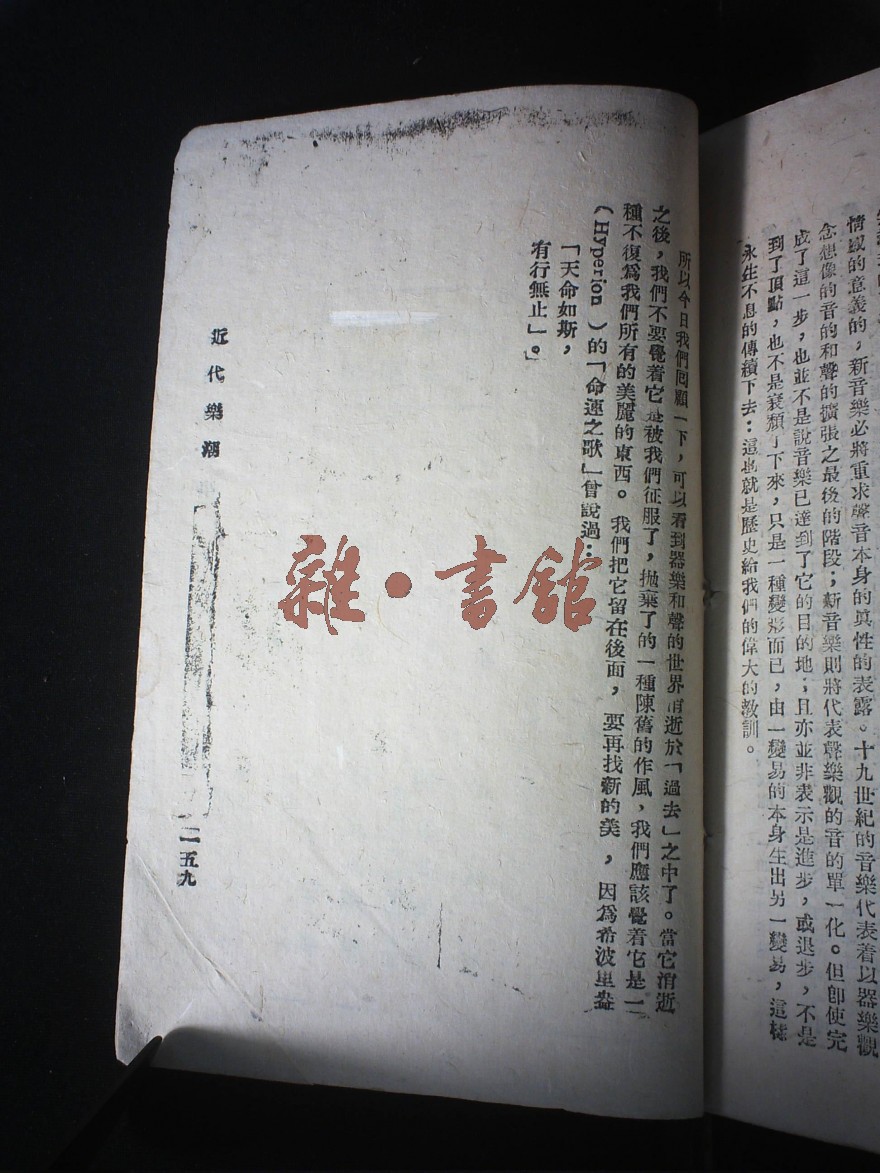 情感的意義的，新音樂必將重求聲音本身的眞性的表露。十九世紀的音樂代表着以器樂觀
念想像的音的和聲的擴張之最後的階段；新音樂則將代表聲樂觀的音的單一化。但卽使完
成了這一步，也並不是說音樂已達到了它的目的地；且亦並非表示是進步，或退步，不是
到了頂點，也不是衰頹了下來，只是一種變形而已，由一變易的本身生出另一變易，這樣
永生不息的傳續下去：這也就是歷史給我們的偉大的教訓。
所以今日我們囘顧一下，可以看到器樂和聲的世界消逝於「過去」之中了。當它消逝
之後，我們不要覺着它是被我們征服了，拋棄了的一種陳舊的作風，我們應該覺着它是一
種不復爲我們所有的美麗的東西。我們把它留在後面，要再找新的美，因爲希波里盎
（Hyperion）的「命運之歌」曾說過：
「天命如斯，
有行無止」。」
近代樂潮
二五九
雜·書館